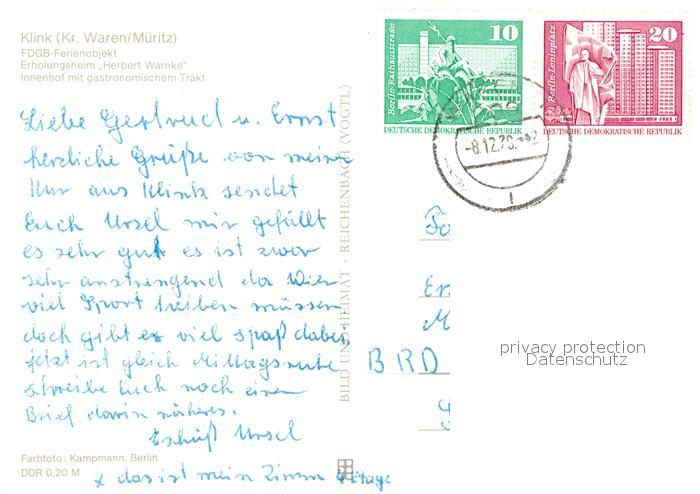 Klink (Kr. Waren/Müritz)
FDGB-Ferienobjekt
Erholungsheim „Herbert Warnke"
Innenhof mit gastronomischem Trakt
Liebe Gertrud u. Ernst
herzliche Grüße von meiner
Kur aus Klink sendet
Euch Ursel mir gefällt
es sehr gut es ist zwar
sehr anstrengend da Wier
viel Sport treiben müssen
doch gibt es viel spaß dabei,
jetzt ist gleich Mittagsruhe
schreibe Euch noch einen
Brief darin näheres.
Ursel
Farbfoto: Kampmann, Berlin
DDR 0,20 M
x das ist mein Zimm 4 Etage
BILD UND HEIMAT · REICHENBACH (VOGTL)
10
Berlin-Rathausstraße
DEUTSCHE DEMOKRATISCHE REPUBLIK
20
Berlin-Leninplatz
DEUTSCHE DEMOKRATISCHE REPUBLIK
-8.12.79
BRD
privacy protection
Datenschutz